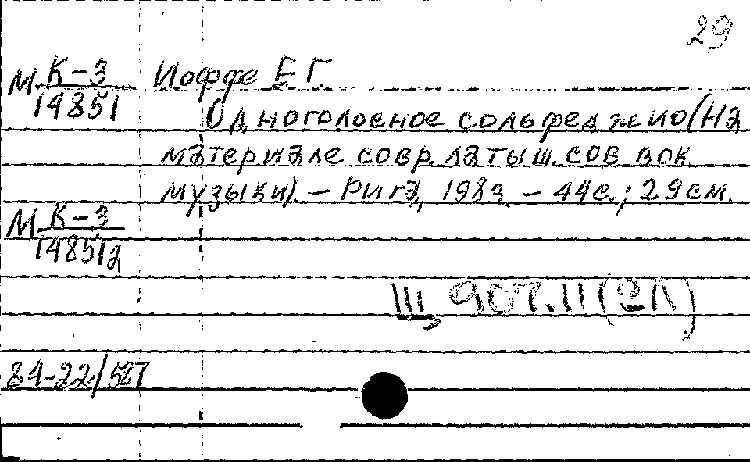 29
М К-3 Иоффе Е Г.
14851 Одноголосное сольфеджио (На
материале совр. латыш. сов вок.
музыки). – Рига, – 44с.; 29см.
М К-3
14851а
Щ 907.11(2Л)
84-22/587